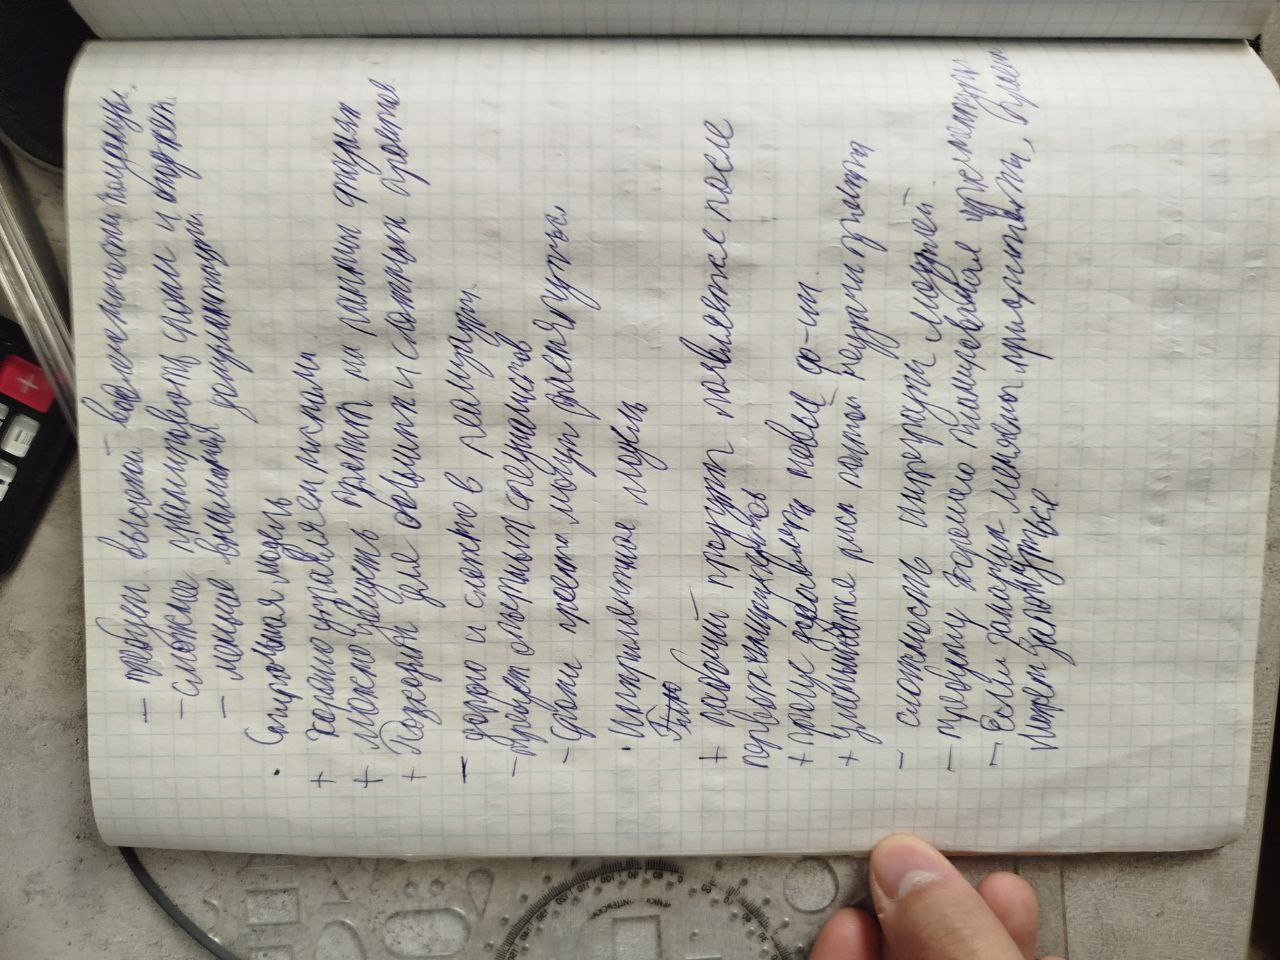 – требует высокой вовлеченности команды.
– сложнее планировать сроки и бюджет.
– меньше внимания документации
• Спиральная модель
+ хорошо управляем рисками
+ можно увидеть на ранних этапах
+ Подходит для больших и сложных проектов.
– дорого и сложно в реализации.
– требует опытных специалистов
– сроки проекта могут растянуться.
• инкрементная модель
+ рабочий продукт появляется после
первых инкрементов
+ проще добавлять новые ф-ии.
+ уменьшается риск полной неудачи проекта
– сложность интеграции модулей.
– требует хорошего планирования архитектуры
– Если заказчик меняет приоритеты, проект
может запутаться